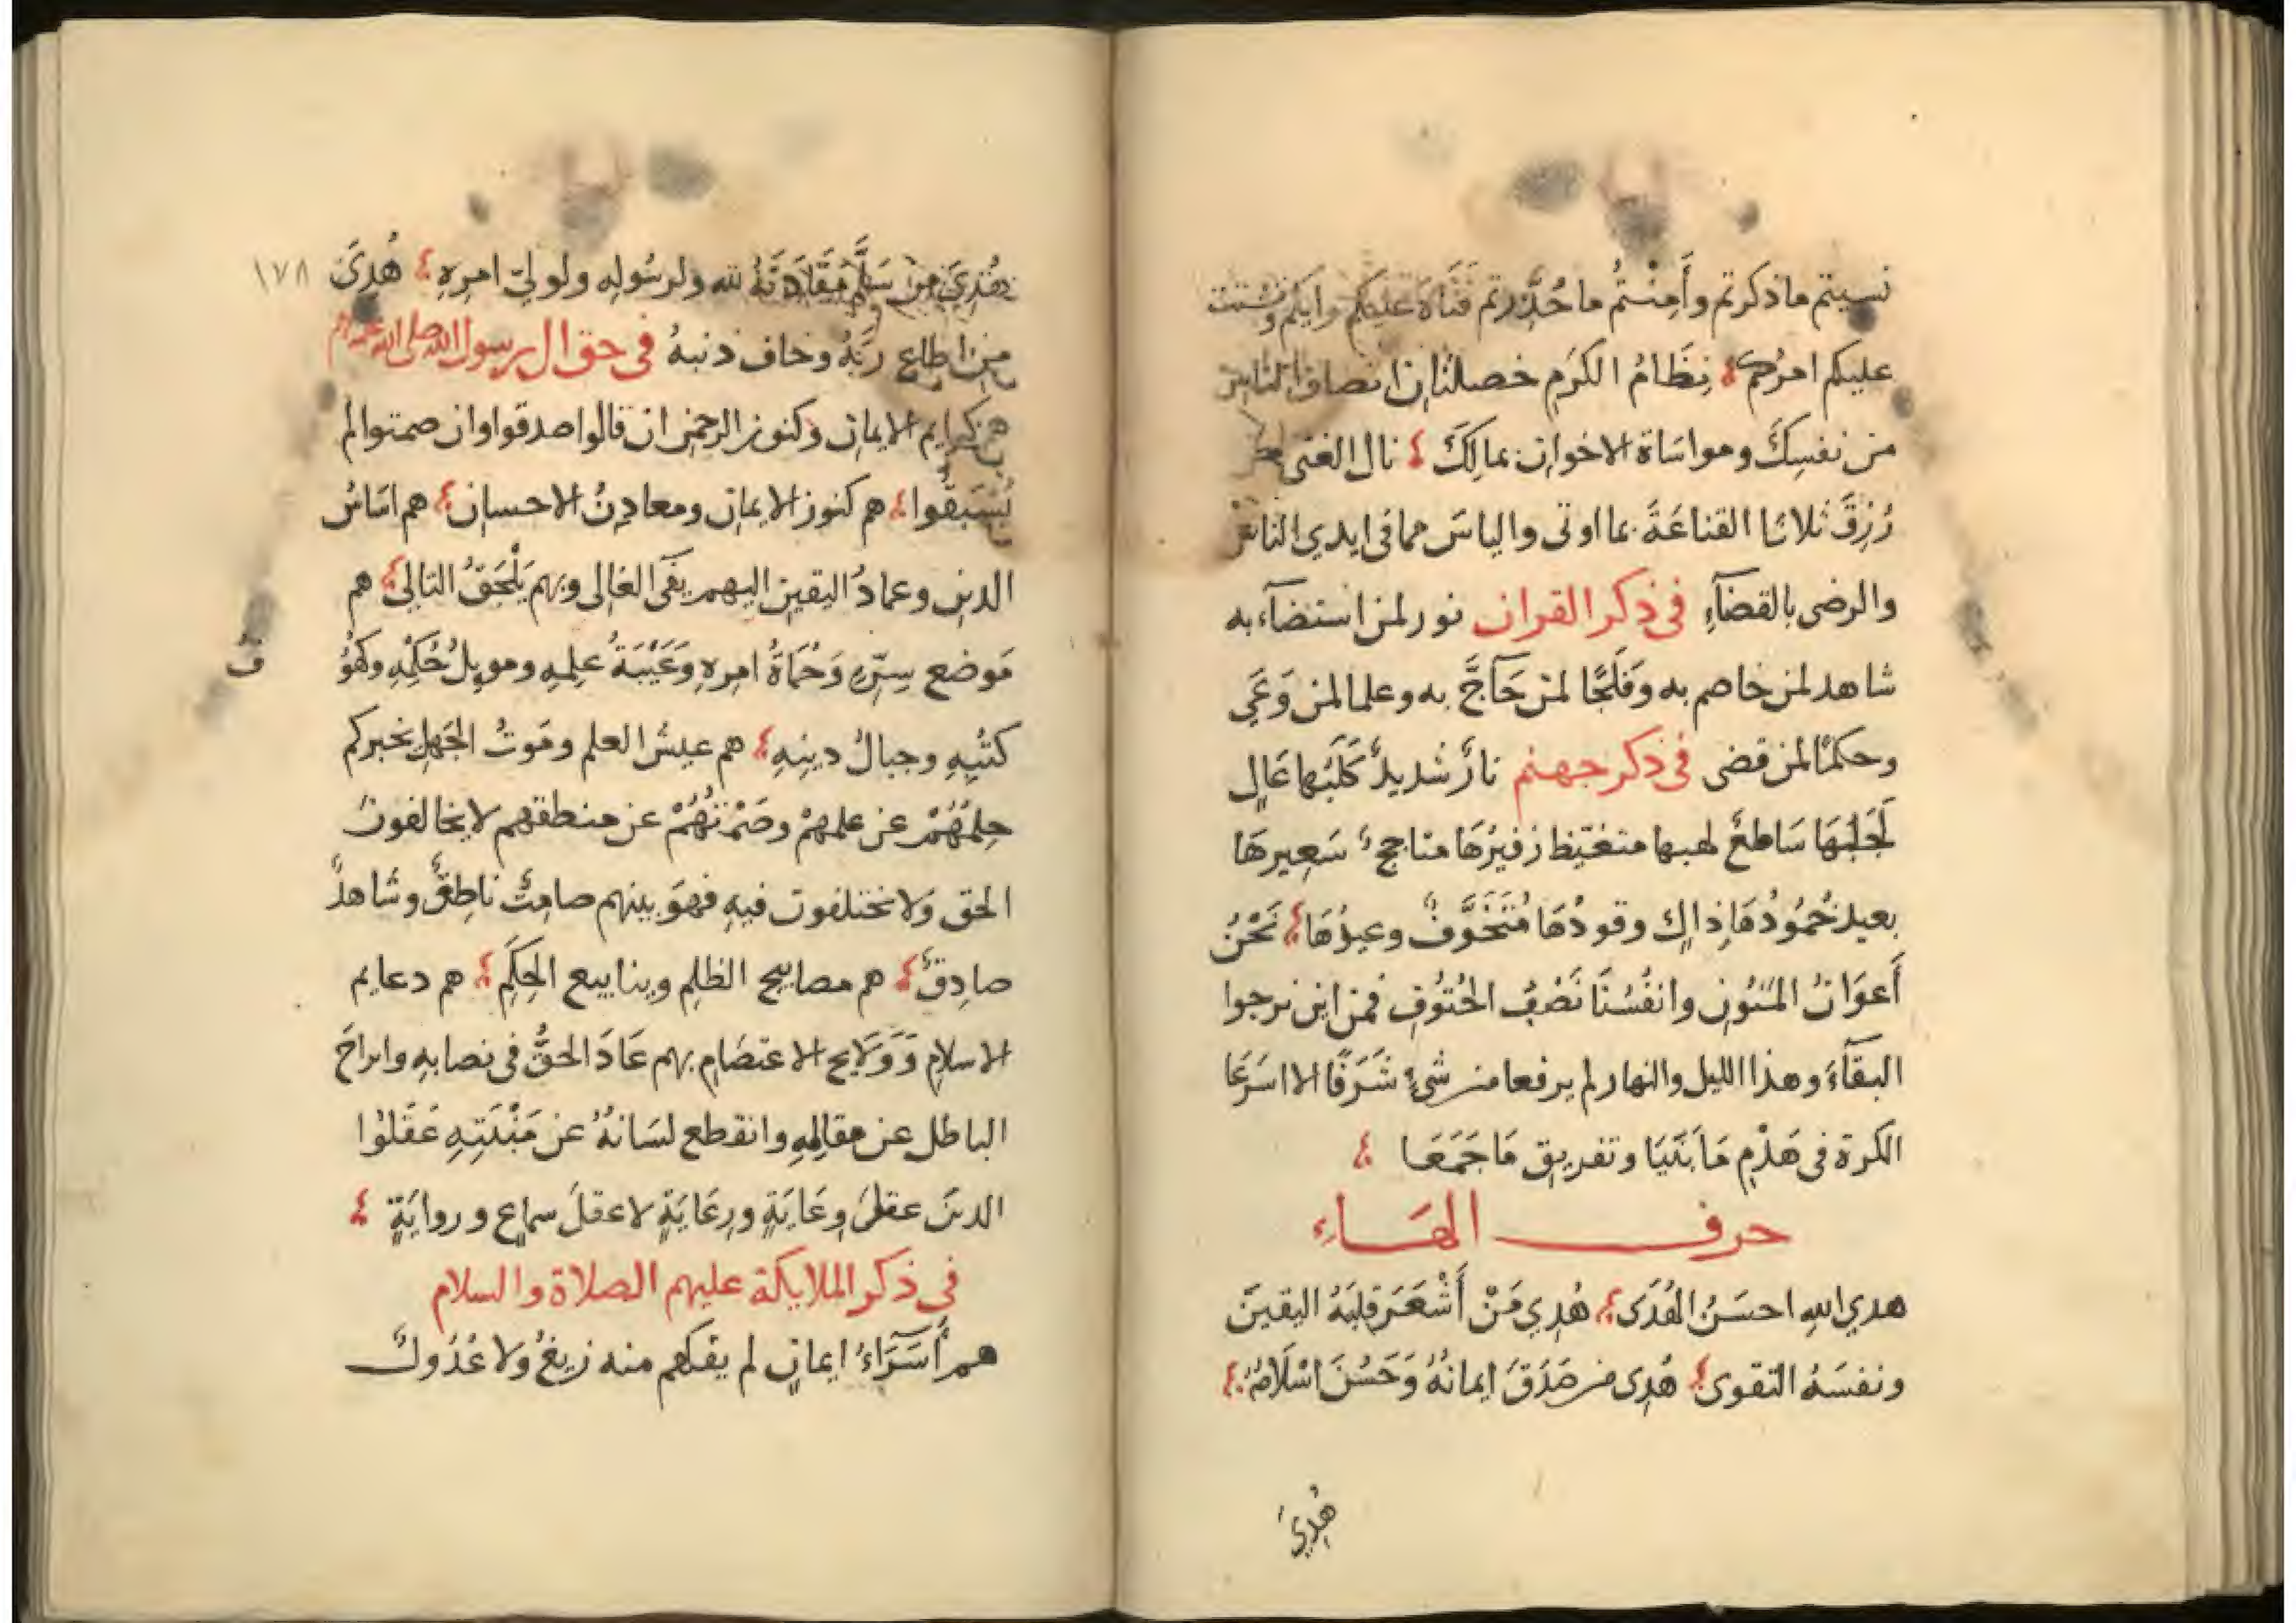 نسيتم ما ذكرتم وأَمِنْتُم ما حُذِّرتم فَتَاهَ عليكم رايكم وتشتت
عليكم امركم نِظَامُ الكَرَمِ خصلتان انصاف الناس
من نفسِكَ ومواسَاة الاخوان بمالِكَ نال الغنى من
رُزِقَ ثلاثا القناعَةَ بما اوتى والياسَ مما فى ايدي الناس
والرضى بالقضآءِ فى ذكر القران نور لمن استضآء به
شاهد لمن خاصم به وَفَلَجًا لمن حَآجَّ به وعلما لمن وَعَي
وحكمًا لمن قضى فى ذكر جهنم نارٌ شديدٌ كَلَبُها عَالٍ
لَجَبُهَا سَاطعٌ لهبها متغيّظ زفيرُهَا متاججٌ سَعِيرهَا
بعيد خُمُودُهَا ذاكٍ وقودُهَا مُتَخَوَّفٌ وعيدُهَا نَحْنُ
أَعوَانُ المَنُونِ وانفُسُنَا نَصْبُ الحُتُوُفِ فمن اين نرجوا
البقآءَ وهذا الليل والنهار لم يرفعا من شىءٍ شَرَفًا الا اسَرعَا
الكرة فى هَدْمِ مَا بَنَيَا وتفريق مَا جَمَعَا
حرف الهَاءِ
هدي اللهِ احسَنُ الهُدَى هُدِي مَنْ أَشْعَرَ قلبَهُ اليقينَ
ونفسَهُ التقوى هُدِى من صَدَقَ ايمانُهُ وَحَسُنَ اسْلَامُهُ
هُدِيَ
هُدِيَ من سَلَّمَ مَقَادَتَهُ لله ولرسُولِهِ ولولىِّ امرِهِ هُدِىَ ١٧٨
من اطاع رَبَّهُ وخاف ذنبهُ فى حق ال رسول الله صلى الله عليه
هم كرايم الايمان وكنوز الرحمن ان قالوا صدقوا وان صمتوا لم
يُسْبَقُوا هم كنوز الايمان ومعادِنُ الاحسان هم اسَاسُ
الدين وعمادُ اليقين اليهم يفى الغالى وبهم يَلْحَقُ التالي هم
مَوضع سِرّهِ وَحُمَاةُ امرِهِ وَعَيْبَةُ علمِهِ وموئِلُ حُكْمِهِ وكهُوُ
ف
كتُبِهِ وجبالُ دينِهِ هم عيشُ العلم ومَوتُ الجَهلِ يخبركم
حِلمُهُمْ عن علمهمْ وصَمْتُهُمْ عن منطقهم لا يخالفون
الحق وَلا يختلفون فيهِ فهوَ بينهم صامِتٌ ناطِقٌ وشاهدٌ
صادِقٌ هم مصابيح الظلمِ وينابيع الحِكَمِ هم دعايم
الاسلامِ وَوَلَايج الاعتصَامِ بهم عَادَ الحقُّ فى نصابِهِ وانزاحَ
الباطل عن مقالِهِ وانقطع لسَانُهُ عن مَنْبَتِهِ عَقَلوْا
الدينَ عقلَ وِعَايَةٍ ورِعَايَةٍ لا عقلَ سماعٍ وروايَةٍ
فى ذكر الملايكة عليهم الصلاة والسلام
هم أُسَرَآءُ ايمانٍ لم يفكهم منه زيغٌ ولا عُدُولٌ